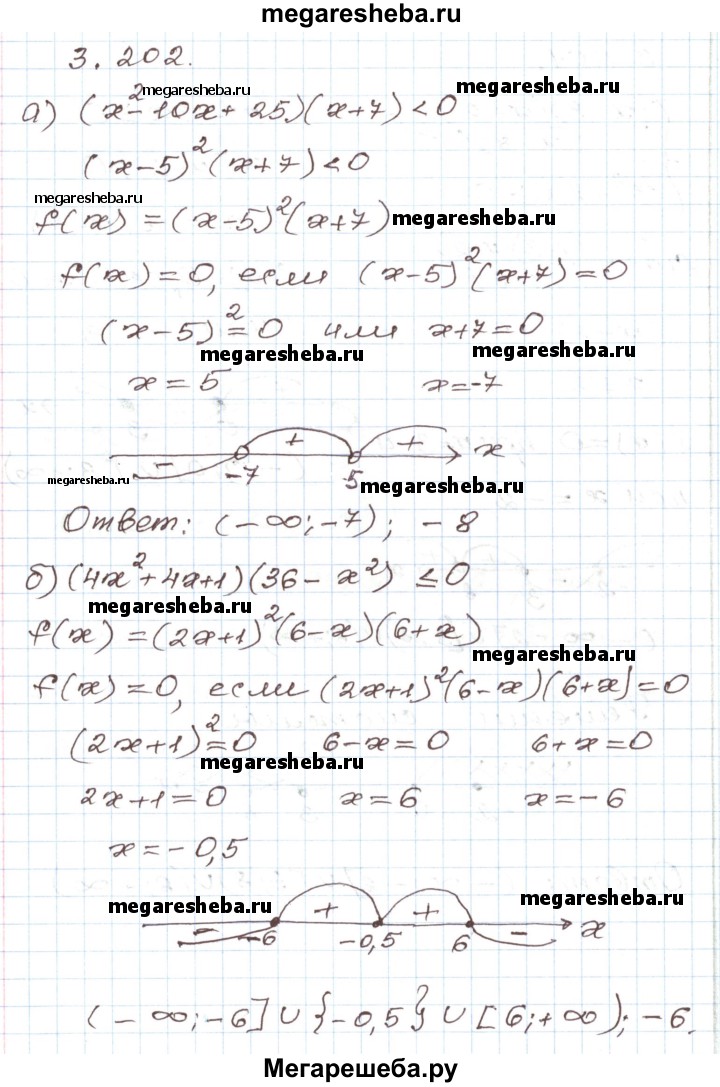 megaresheba.ru
3.202.
megaresheba.ru megaresheba.ru
а) (x²-10x+25)(x+7)<0
(x-5)²(x+7)<0
megaresheba.ru
f(x)=(x-5)²(x+7) megaresheba.ru
f(x)=0, если (x-5)²(x+7)=0
(x-5)²=0 или x+7=0
megaresheba.ru megaresheba.ru
x=5 x=-7
+ + x
- -7 5
megaresheba.ru megaresheba.ru
Ответ: (-∞;-7); -8
б) (4x²+4x+1)(36-x²) ≤0
megaresheba.ru
f(x)=(2x+1)²(6-x)(6+x)
megaresheba.ru
f(x)=0, если (2x+1)²(6-x)(6+x)=0
(2x+1)²=0 6-x=0 6+x=0
megaresheba.ru
2x+1=0 x=6 x=-6
x=-0,5
megaresheba.ru + + megaresheba.ru
- -6 -0,5 6 - x
(-∞;-6]∪{-0,5}∪[6;+∞); -6.
Мегарешеба.ру